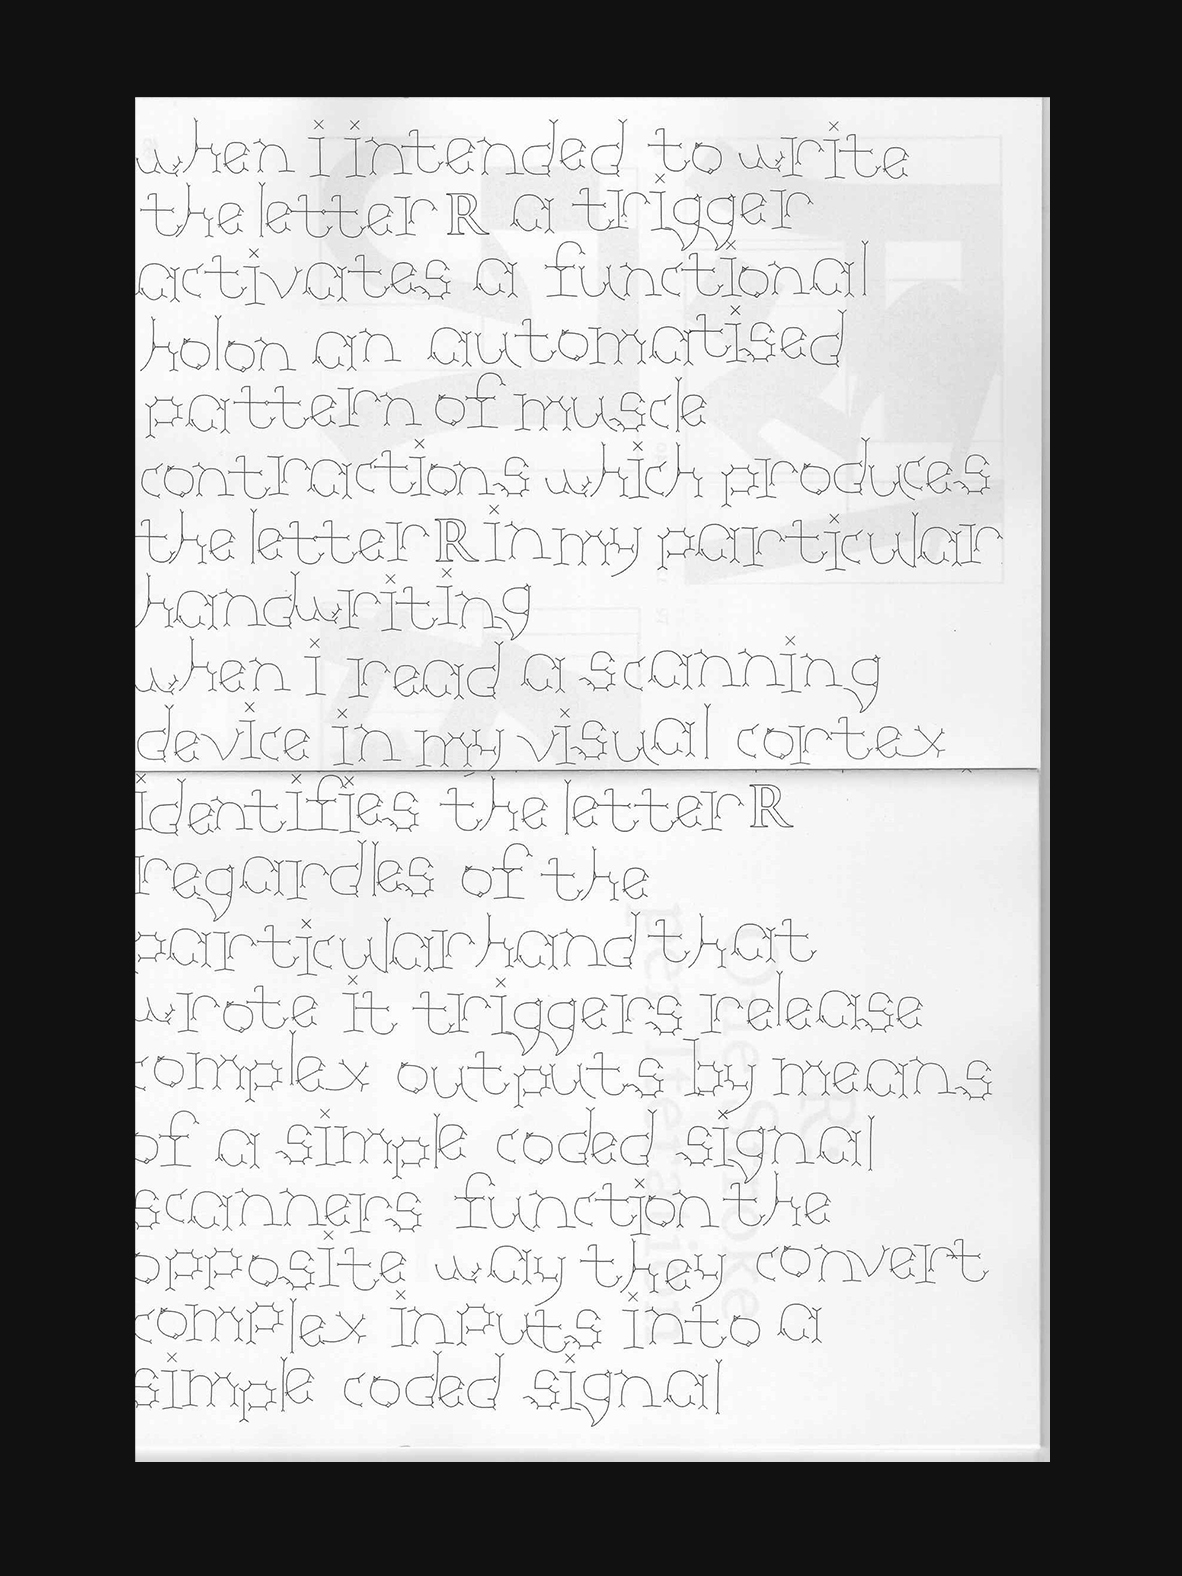 when i intended to write
the letter ℝ a trigger
activates a functional
holon an automatised
pattern of muscle
contractions which produces
the letter ℝ in my particular
handwriting
when i read a scanning
device in my visual cortex
identifies the letter ℝ
regardles of the
particular hand that
wrote it triggers release
complex outputs by means
of a simple coded signal
scanners function the
opposite way they convert
complex inputs into a
simple coded signal